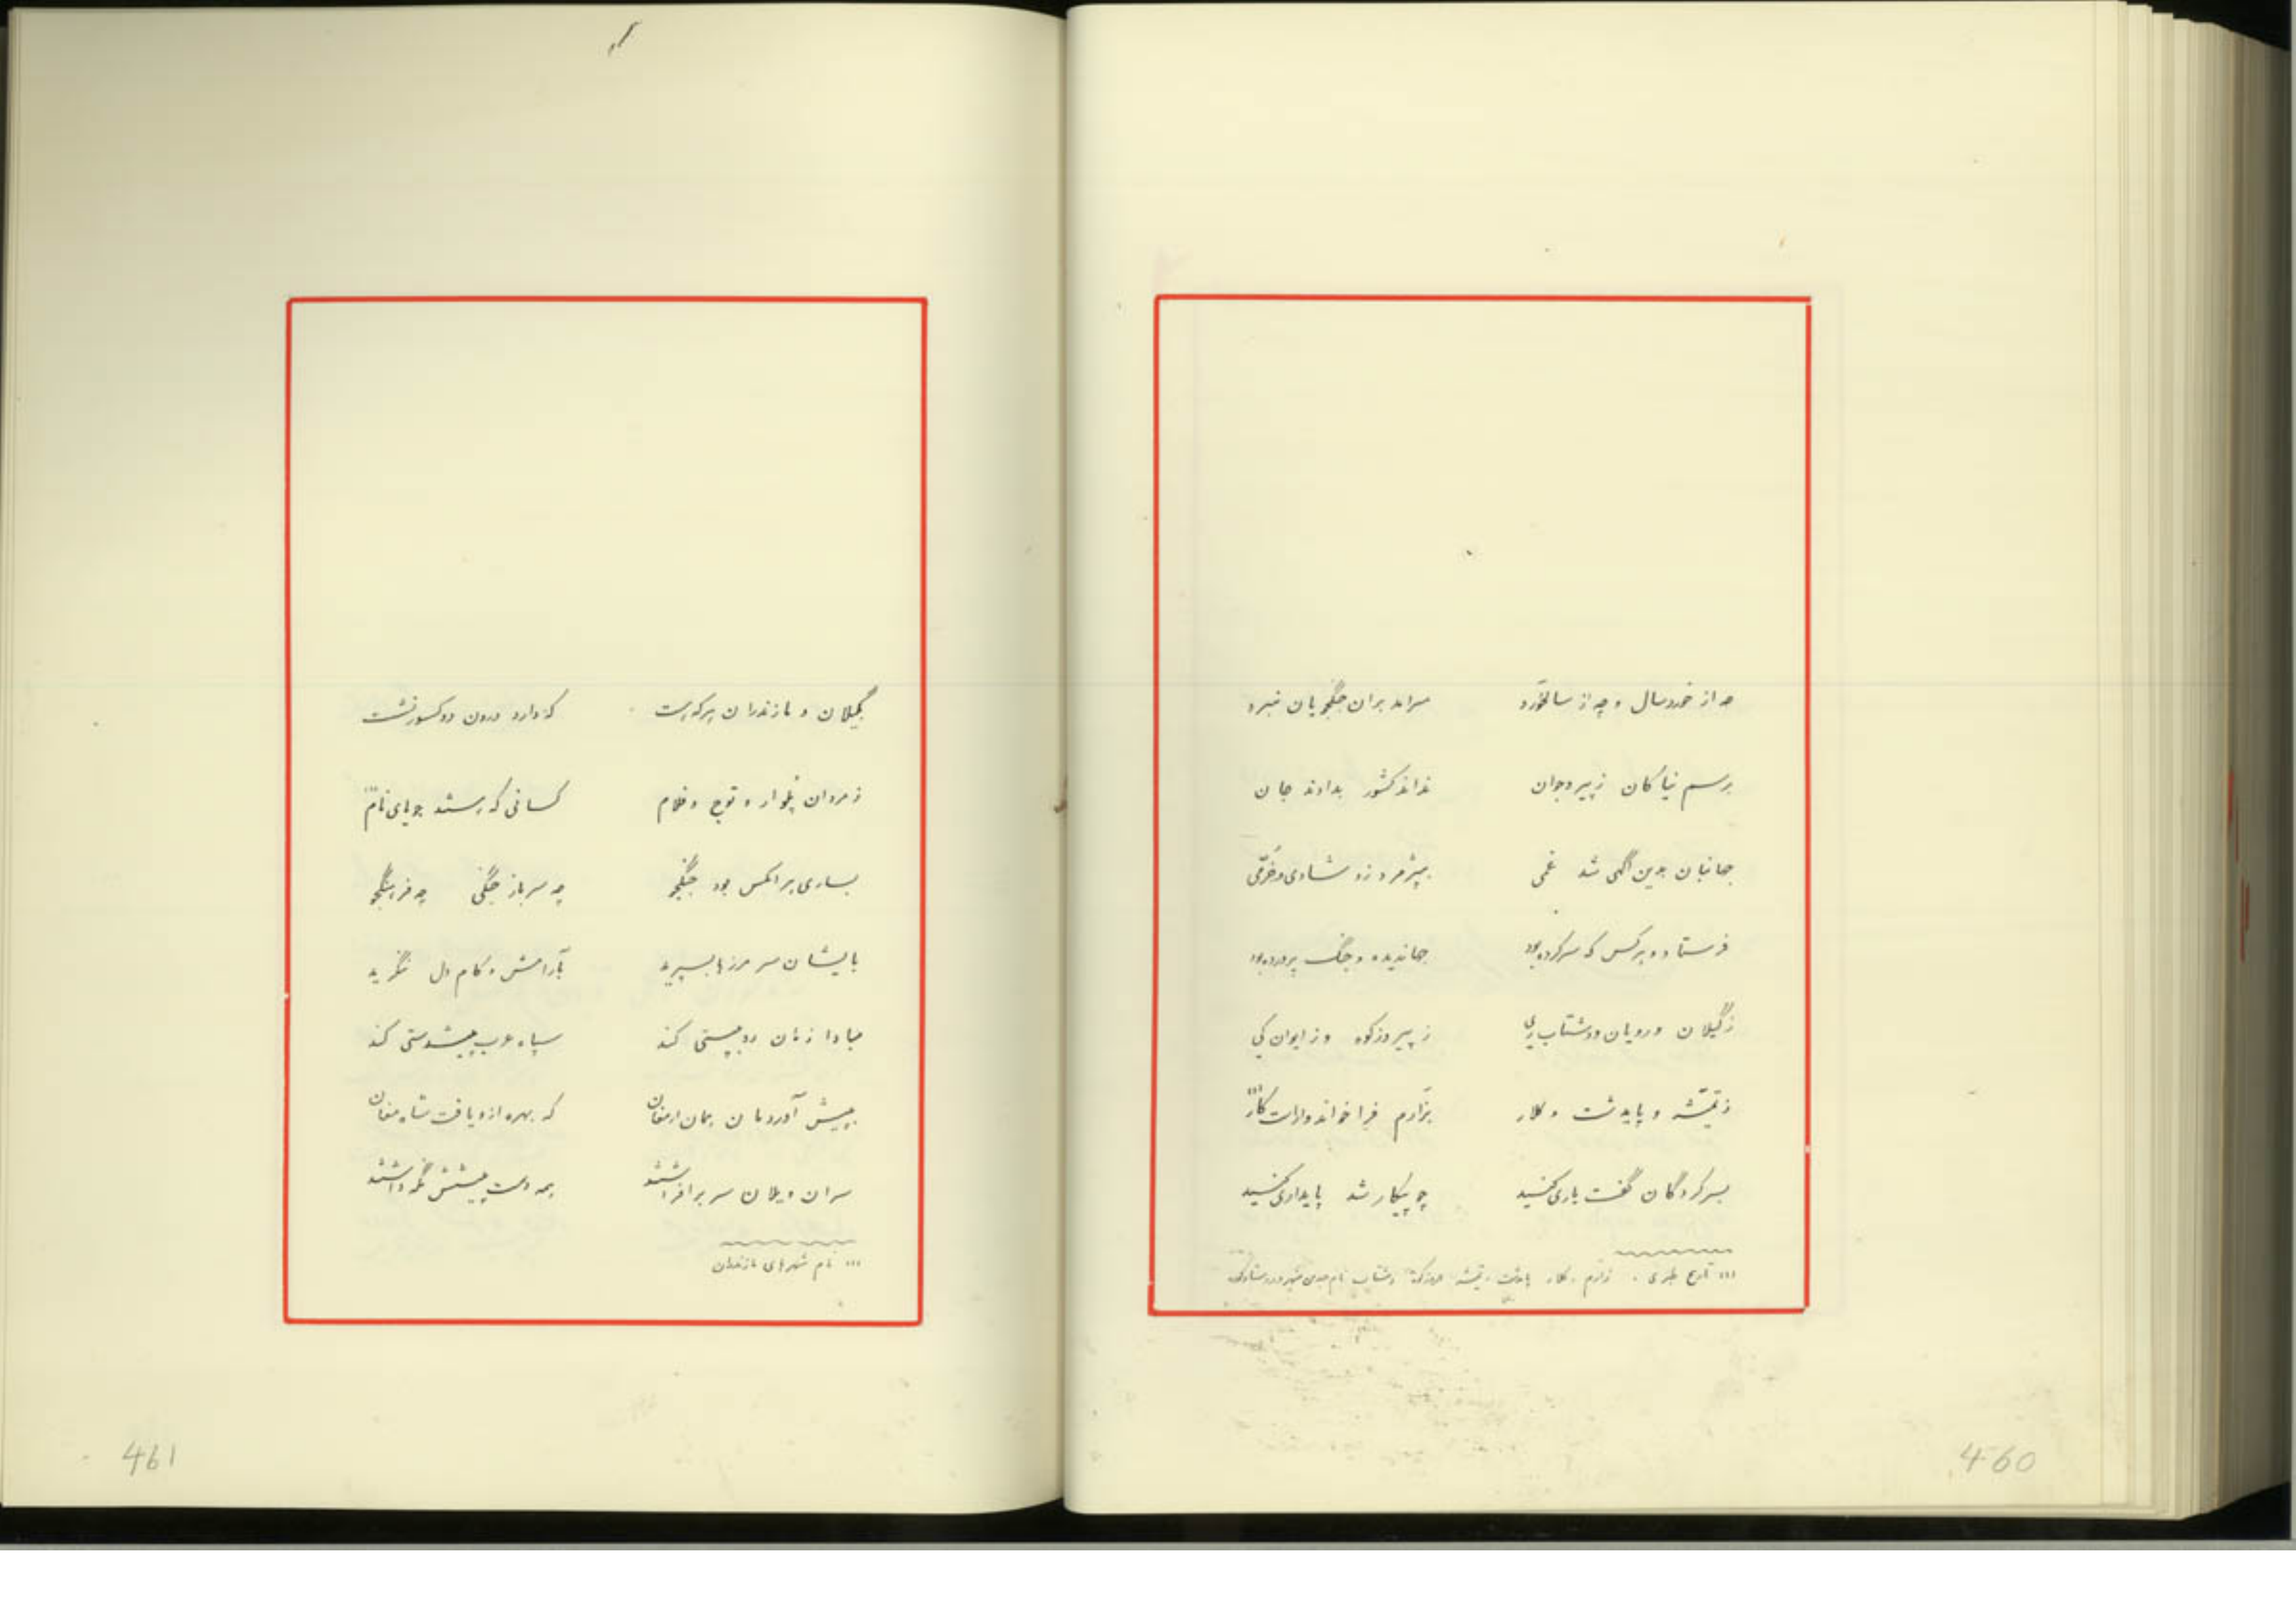 چه از خردسال و چه از سالخورد سراند بران جنگجویان نبرد
برسم نیاکان ز پیر و جوان نداند کشور بدادند جان
جهانبان بدین آگهی شد غمی بپژمرد زو شادی و خرمی
فرستاد و هرکس که سرکرده بود جهاندیده و جنگ پرورده بود
ز گیلان و رویان و دشتاب ری ز پیروزکوه وز ایوان کی
ز تمیشه و پایدشت و کلار بزارم فراخواند و لارت
بسرکردگان گفت یاری کنید چو پیکار شد پایداری کنید
(۱) تاریخ طبری . زارم . کلار پایدشت . تمیشه دشتاب نام
460
بگیلان و مازندران هرکه هست که دارد درون دو کشور نشست
ز مردان پلوار و توج و کسانی که هستند جویای نام (۱)
بساری هر آنکس بود جنگجو چه سرباز جنگی چه فرهنگجو
بایشان سر مرزها بسپرید بآرامش و کام دل ننگرید
مبادا زمان رو بپستی کند سپاه عرب پیشدستی کند
بپیش آوردمان همان ارمغان که بهره ازو یافت شاه مغان
سران و یلان سر برافراشتند همه دست پیشش نگهداشتند
(۱) نام شهرهای مازندران
461